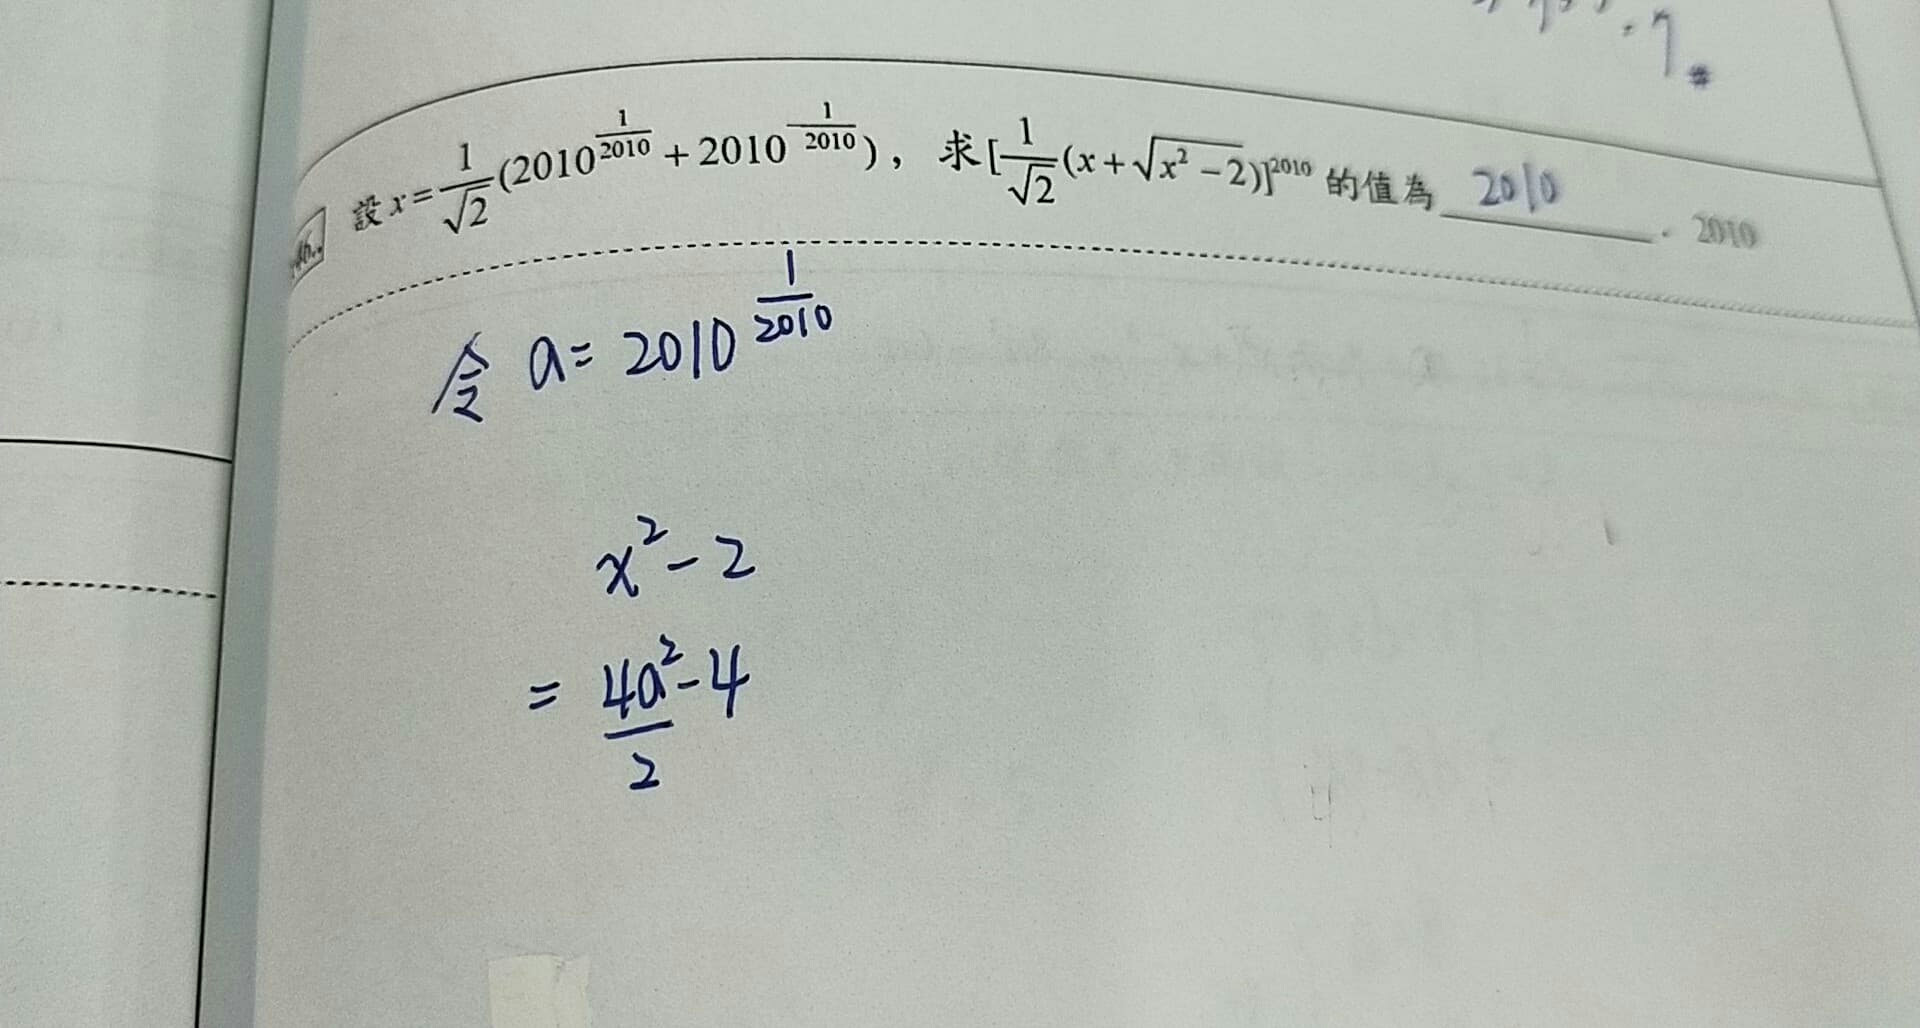 設 x = \frac{1}{\sqrt{2}}(2010^{\frac{1}{2010}} + 2010^{-\frac{1}{2010}})，求[\frac{1}{\sqrt{2}}(x + \sqrt{x^2 - 2})]^{2010} 的值為 2010 . 2010
令 a = 2010^{\frac{1}{2010}}
x^2 - 2
= \frac{4a^2}{2} - 4